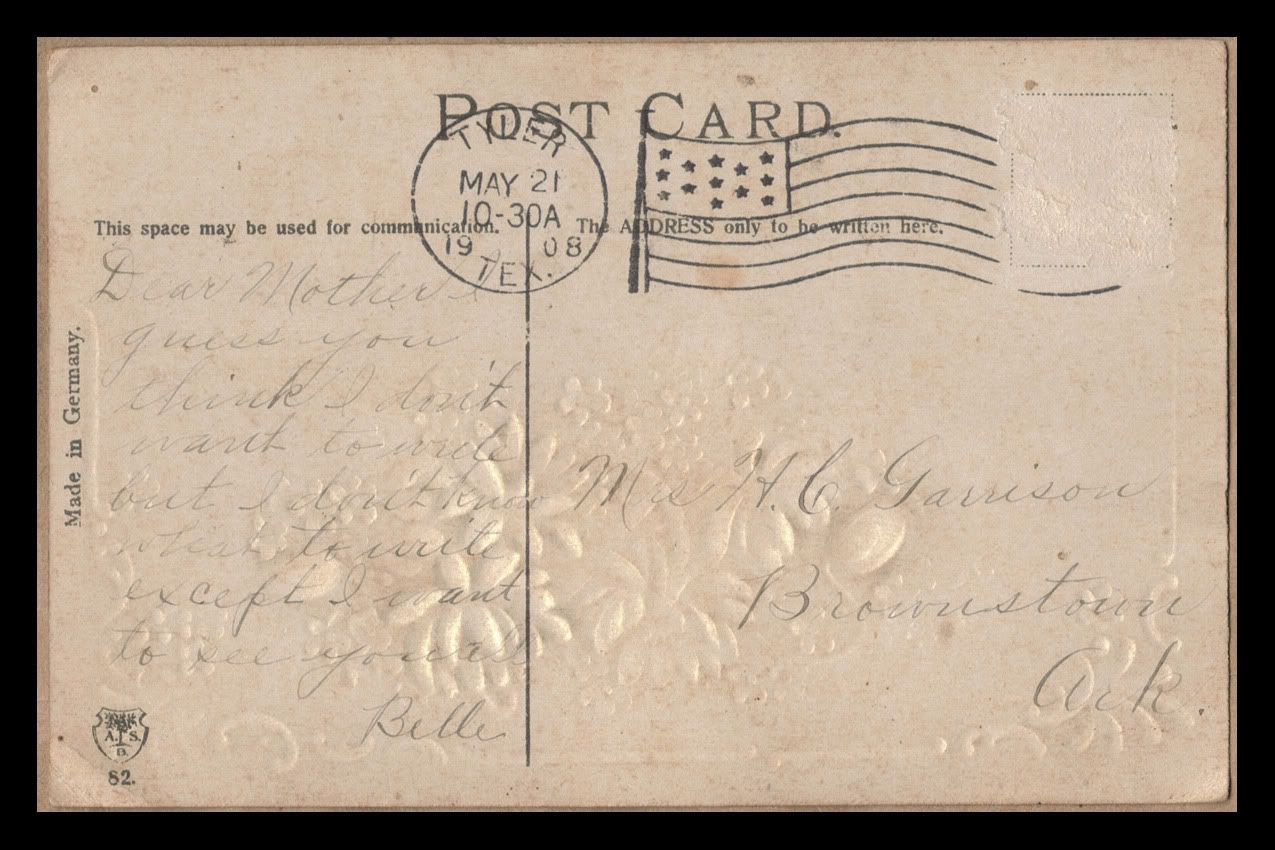 POST CARD.
TYLER
MAY 21
10-30A
19 08
TEX.
This space may be used for communication.
The ADDRESS only to be written here.
Dear Mother I
guess you
think I don't
want to write
but I don't know
what to write
except I want
to see you all
Belle
Mrs H. C. Garrison
Brownstown
Ark.
Made in Germany.
A. S.
B.
82.